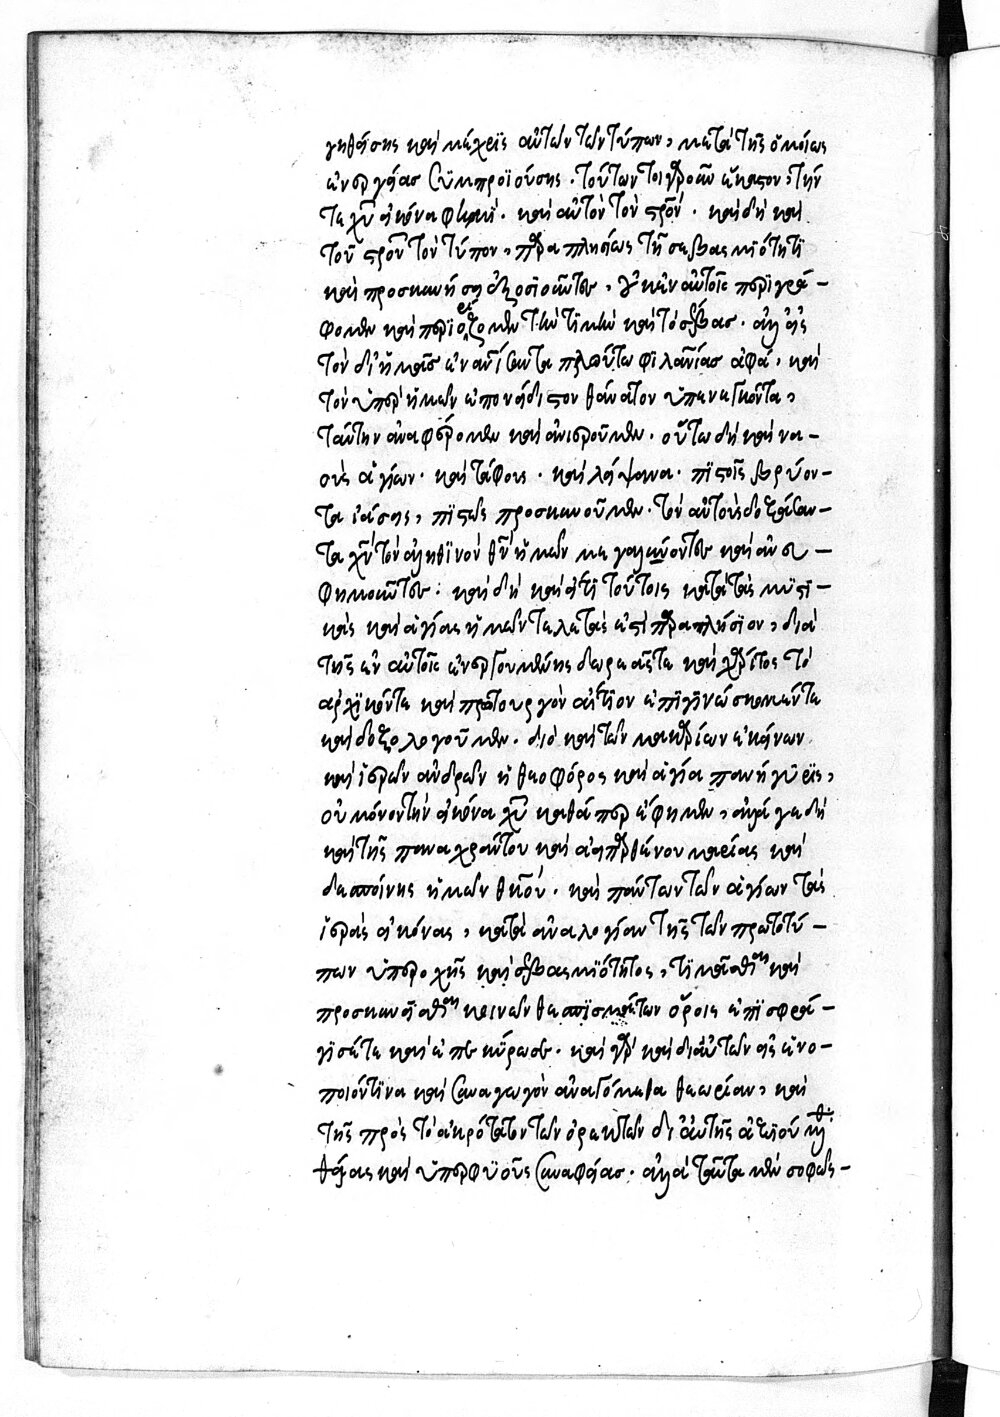 γηθείσης καὶ μέχρις αὐτῶν τῶν τύπων, κατὰ τῆς ὁμοίως
ἐνεργείας συμπροϊούσης. τούτων τοιγαροῦν ἕκαστον, τήν
τε χυ εἰκόνα φημί. καὶ αὐτὸν τὸν στρόν. καὶ δὴ καὶ
τοῦ στροῦ τὸν τύπον, παραπλησίως τῇ σεβασμιότητι
καὶ προσκυνήσει ἀξιοῦντες, ἐκεῖν αὐτοῖς περιγρά-
φομεν καὶ περιορίζομεν τὴν τιμὴν καὶ τὸ σέβας. ἀλλ' εἰς
τὸν δι' ἡμᾶς ἐνανήσαντα πλούτω φιλανίας ἀφά, καὶ
τὸν ὑπὲρ ἡμῶν ἐπονείδιστον θάνατον ὑπενεγκόντα,
ταύτην ἀναφέρομεν καὶ ἀνιεροῦμεν. οὕτω δὴ καὶ να-
οὺς ἁγίων. καὶ τάφους. καὶ λείψανα. πιστοῖς βρύον-
τα ἰάσεις, πιστῶς προσκυνοῦμεν. τὸν αὐτοὺς δοξάσαν-
τα χν τὸν ἀληθινὸν θν ἡμῶν μεγαλύνοντες καὶ ἀνευ-
φημοῦντες. καὶ δὴ καὶ ἐπὶ τούτοις κατὰ τὰς μυστι-
κὰς καὶ ἁγίας ἡμῶν τελετὰς ἐπὶ παραπλήσιον, διὰ
τῆς ἐν αὐτοῖς ἐνεργουμένης δωρεᾶς τε καὶ χάριτος τὸ
ἀρχικόν τε καὶ πρωτουργὸν αἴτιον ἐπιγινώσκομέν τε
καὶ δοξολογοῦμεν. διὸ καὶ τῶν μακαρίων ἐκείνων
καὶ ἱερῶν ἀνδρῶν ἡ θεοφόρος καὶ ἁγία πανήγυρις,
οὐ μόνον τὴν εἰκόνα χυ καθάπερ ἔφημεν, ἀλλά γε δὴ
καὶ τῆς παναχράντου καὶ ἀειπαρθένου μαρίας καὶ
δεσποίνης ἡμῶν θκου. καὶ πάντων τῶν ἁγίων τὰς
ἱερὰς εἰκόνας, κατὰ ἀναλογίαν τῆς τῶν πρωτοτύ-
πων ὑπεροχῆς καὶ σεβασμιότητος, τιμᾶσθαι καὶ
προσκυνεῖσθαι κοινῶν θεσπισμάτων ὅροις ἐπισφρά-
γισέ τε καὶ ἐπεκύρωσε. καὶ γὰρ καὶ δι' αὐτῶν εἰς ἑνο-
ποιόν τινα καὶ συναγωγὸν ἀναγόμεθα θεωρίαν, καὶ
τῆς πρὸς τὸ ἀκρότατον τῶν ὀρεκτῶν δι' αὐτῆς ἀξιούμεθα
θείας καὶ ὑπερφυοῦς συναφείας. ἀλλὰ ταῦτα μὲν σοφῶς-